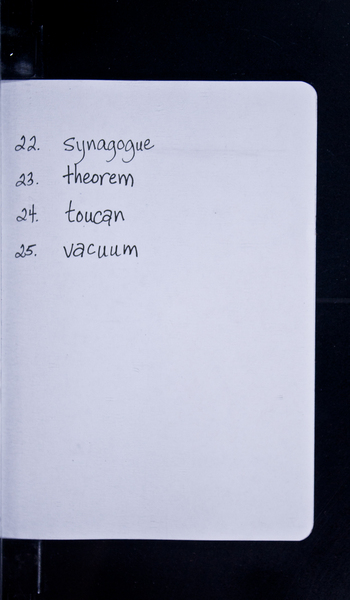 22. synagogue
23. theorem
24. toucan
25. vacuum